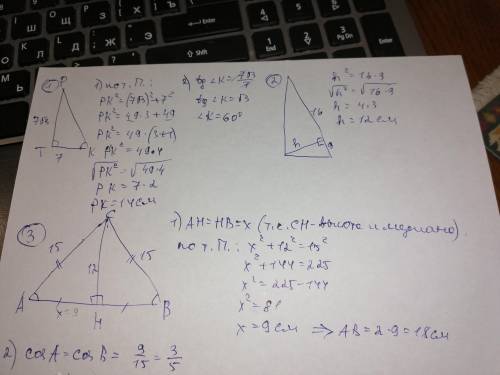 ①
P
7√3
T
7
K
1) по т. П.:
PK² = (7√3)² + 7²
PK² = 49·3 + 49
PK² = 49·(3+1)
PK² = 49·4
√PK² = √49·4
PK = 7·2
PK = 14 см
2) tg ∠K = 7√3/7
tg ∠K = √3
∠K = 60°
②
16
h
9
h² = 16·9
√h² = √16·9
h = 4·3
h = 12 см
③
C
15
12
15
A
x-9
H
B
1) AH = HB = x (т.к. CH - высота и медиана).
по т. П.: x² + 12² = 15²
x² + 144 = 225
x² = 225 - 144
x² = 81
x = 9 см ⇒ AB = 2·9 = 18 см
2) cos A = cos B = 9/15 = 3/5